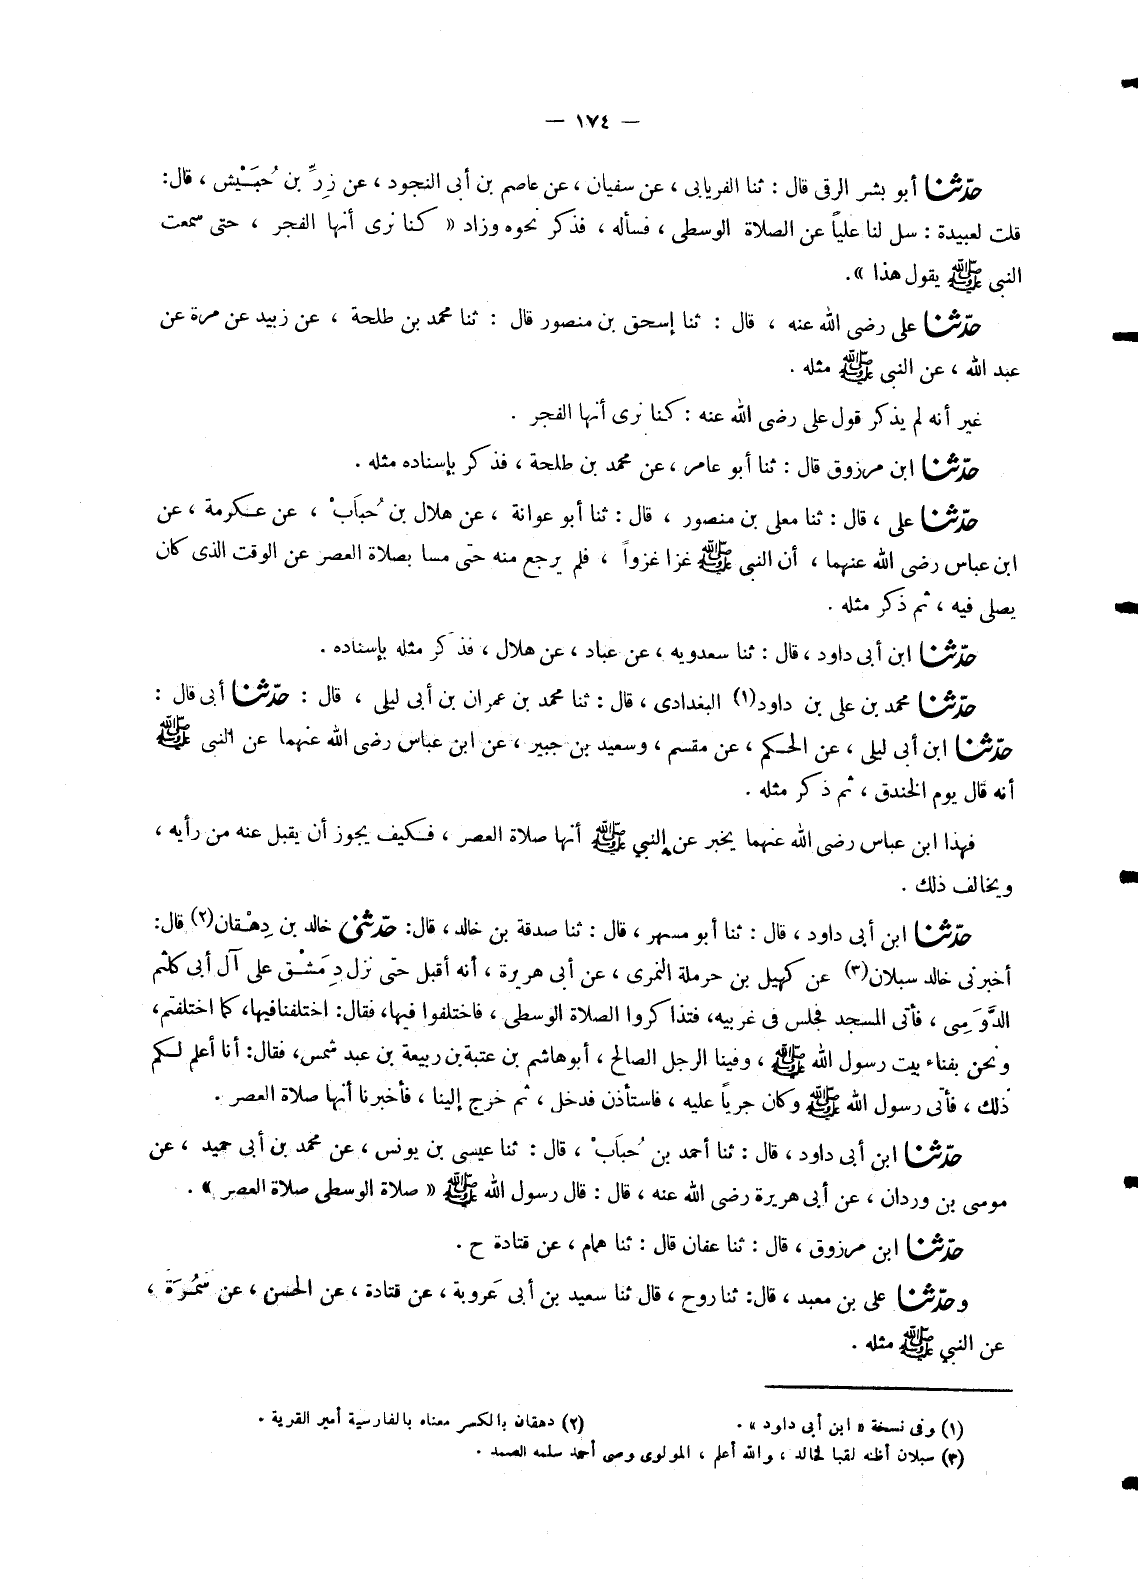 — ١٧٤ —
حدّثنا أبو بشر الرقى قال : ثنا الفريابى ، عن سفيان ، عن عاصم بن أبى النجود ، عن زِرِّ بن حُبَيْش ، قال:
قلت لعبيدة : سل لنا علياً عن الصلاة الوسطى ، فسأله ، فذكر نحوه وزاد « كنا نرى أنها الفجر ، حتى سمعت
النبى ﷺ يقول هذا ».
حدّثنا على رضى الله عنه ، قال : ثنا إسحق بن منصور قال : ثنا محمد بن طلحة ، عن زبيد عن مرة عن
عبد الله ، عن النبى ﷺ مثله .
غير أنه لم يذكر قول على رضى الله عنه : كنا نرى أنها الفجر .
حدّثنا ابن مرزوق قال : ثنا أبو عامر ، عن محمد بن طلحة ، فذكر بإسناده مثله .
حدّثنا على ، قال : ثنا معلى بن منصور ، قال : ثنا أبو عوانة ، عن هلال بن حُباَبْ ، عن عكرمة ، عن
ابن عباس رضى الله عنهما ، أن النبى ﷺ غزا غزواً ، فلم يرجع منه حتى مسا بصلاة العصر عن الوقت الذى كان
يصلى فيه ، ثم ذكر مثله .
حدّثنا ابن أبى داود ، قال : ثنا سعدويه ، عن عباد ، عن هلال ، فذكر مثله بإسناده .
حدّثنا محمد بن على بن داود(١) البغدادى ، قال : ثنا محمد بن عمران بن أبى ليلى ، قال : حدّثنا أبى قال :
حدّثنا ابن أبى ليلى ، عن الحكم ، عن مقسم ، وسعيد بن جبير ، عن ابن عباس رضى الله عنهما عن النبى ﷺ
أنه قال يوم الخندق ، ثم ذكر مثله .
فهذا ابن عباس رضى الله عنهما يخبر عن النبي ﷺ أنها صلاة العصر ، فكيف يجوز أن يقبل عنه من رأيه ،
ويخالف ذلك .
حدّثنا ابن أبى داود ، قال : ثنا أبو مسهر ، قال : ثنا صدقة بن خالد ، قال: حدّثنى خالد بن دِهْقان(٢) قال:
أخبرنى خالد سبلان(٣) عن كهيل بن حرملة النمرى ، عن أبى هريرة ، أنه أقبل حتى نزل دِمَشْق على آل أبى كلثم
الدَّوَسِى ، فأتى المسجد فجلس فى غربيه، فتذاكروا الصلاة الوسطى ، فاختلفوا فيها، فقال: اختلفنافيها، كما اختلفتم،
ونحن بفناء بيت رسول الله ﷺ ، وفينا الرجل الصالح ، أبوهاشم بن عتبة بن ربيعة بن عبد شمس، فقال: أنا أعلم لكم
ذلك ، فأتى رسول الله ﷺ وكان جرياً عليه ، فاستأذن فدخل ، ثم خرج إلينا ، فأخبرنا أنها صلاة العصر .
حدّثنا ابن أبى داود ، قال : ثنا أحمد بن حُباَبْ ، قال : ثنا عيسى بن يونس ، عن محمد بن أبى حميد ، عن
موسى بن وردان ، عن أبى هريرة رضى الله عنه ، قال : قال رسول الله ﷺ « صلاة الوسطى صلاة العصر » .
حدّثنا ابن مرزوق ، قال : ثنا عفان قال : ثنا همام ، عن قتادة ح .
وحدّثنا على بن معبد ، قال: ثنا روح ، قال ثنا سعيد بن أبى عَروبة ، عن قتادة ، عن الحسن ، عن سَمُرَة ،
عن النبي ﷺ مثله .
(١) وفى نسخة « ابن أبى داود » . (٢) دهقان بالكسر معناه بالفارسية أمير القرية .
(٣) سبلان أظنه لقبا لخالد ، والله أعلم ، المولوى وصى أحمد سلمه الصمد .